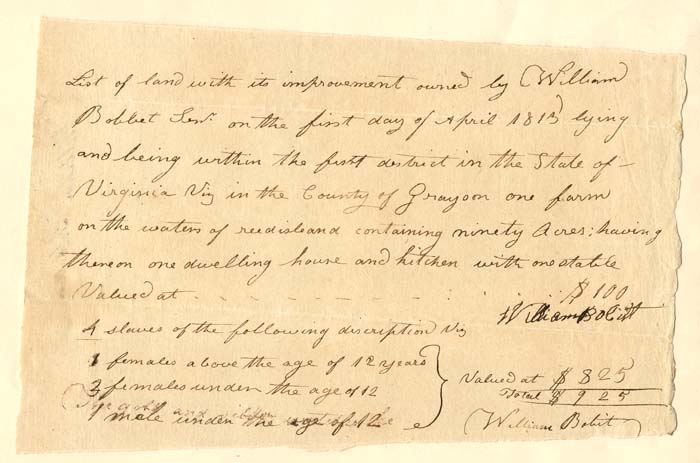 List of land with its improvement owned by William
Bobbet Senr. on the first day of April 1815 lying
and being within the first district in the State of
Virginia Viz in the County of Grayson one farm
on the waters of reedisleand containing ninety Acres; having
thereon one dwelling house and kitchen with one stable
Valued at - - - - - - - $ 100
William Bobitt
4 slaves of the following discription Viz
1 females above the age of 12 years
3 females under the age of 12
Valued at $ 825
Total $ 925
1 male under the age of 12
William Bobit